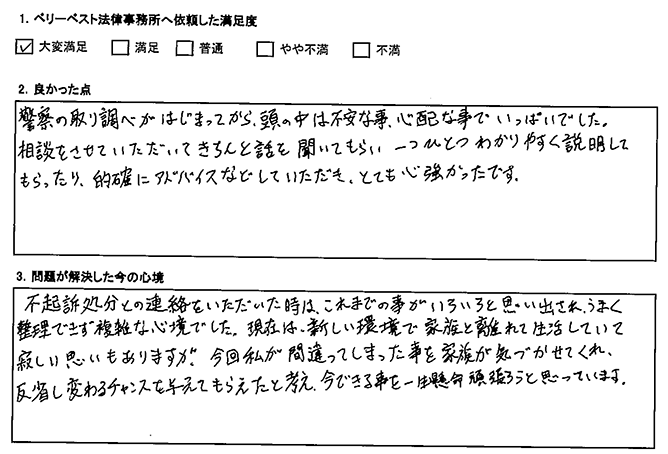 1. ベリーベスト法律事務所へ依頼した満足度
☑ 大変満足 □ 満足 □ 普通 □ やや不満 □ 不満
2. 良かった点
警察の取り調べがはじまってから、頭の中は不安な事、心配な事でいっぱいでした。
相談をさせていただいてきちんと話を聞いてもらい一つひとつわかりやすく説明して
もらったり、的確にアドバイスなどしていただき、とても心強かったです。
3. 問題が解決した今の心境
不起訴処分との連絡をいただいた時は、これまでの事がいろいろと思い出され、うまく
整理できず複雑な心境でした。現在は、新しい環境で家族と離れて生活していて
寂しい思いもありますが、今回私が間違ってしまった事を家族が気づかせてくれ、
反省し変わるチャンスを与えてもらえたと考え、今できる事を一生懸命頑張ろうと思っています。